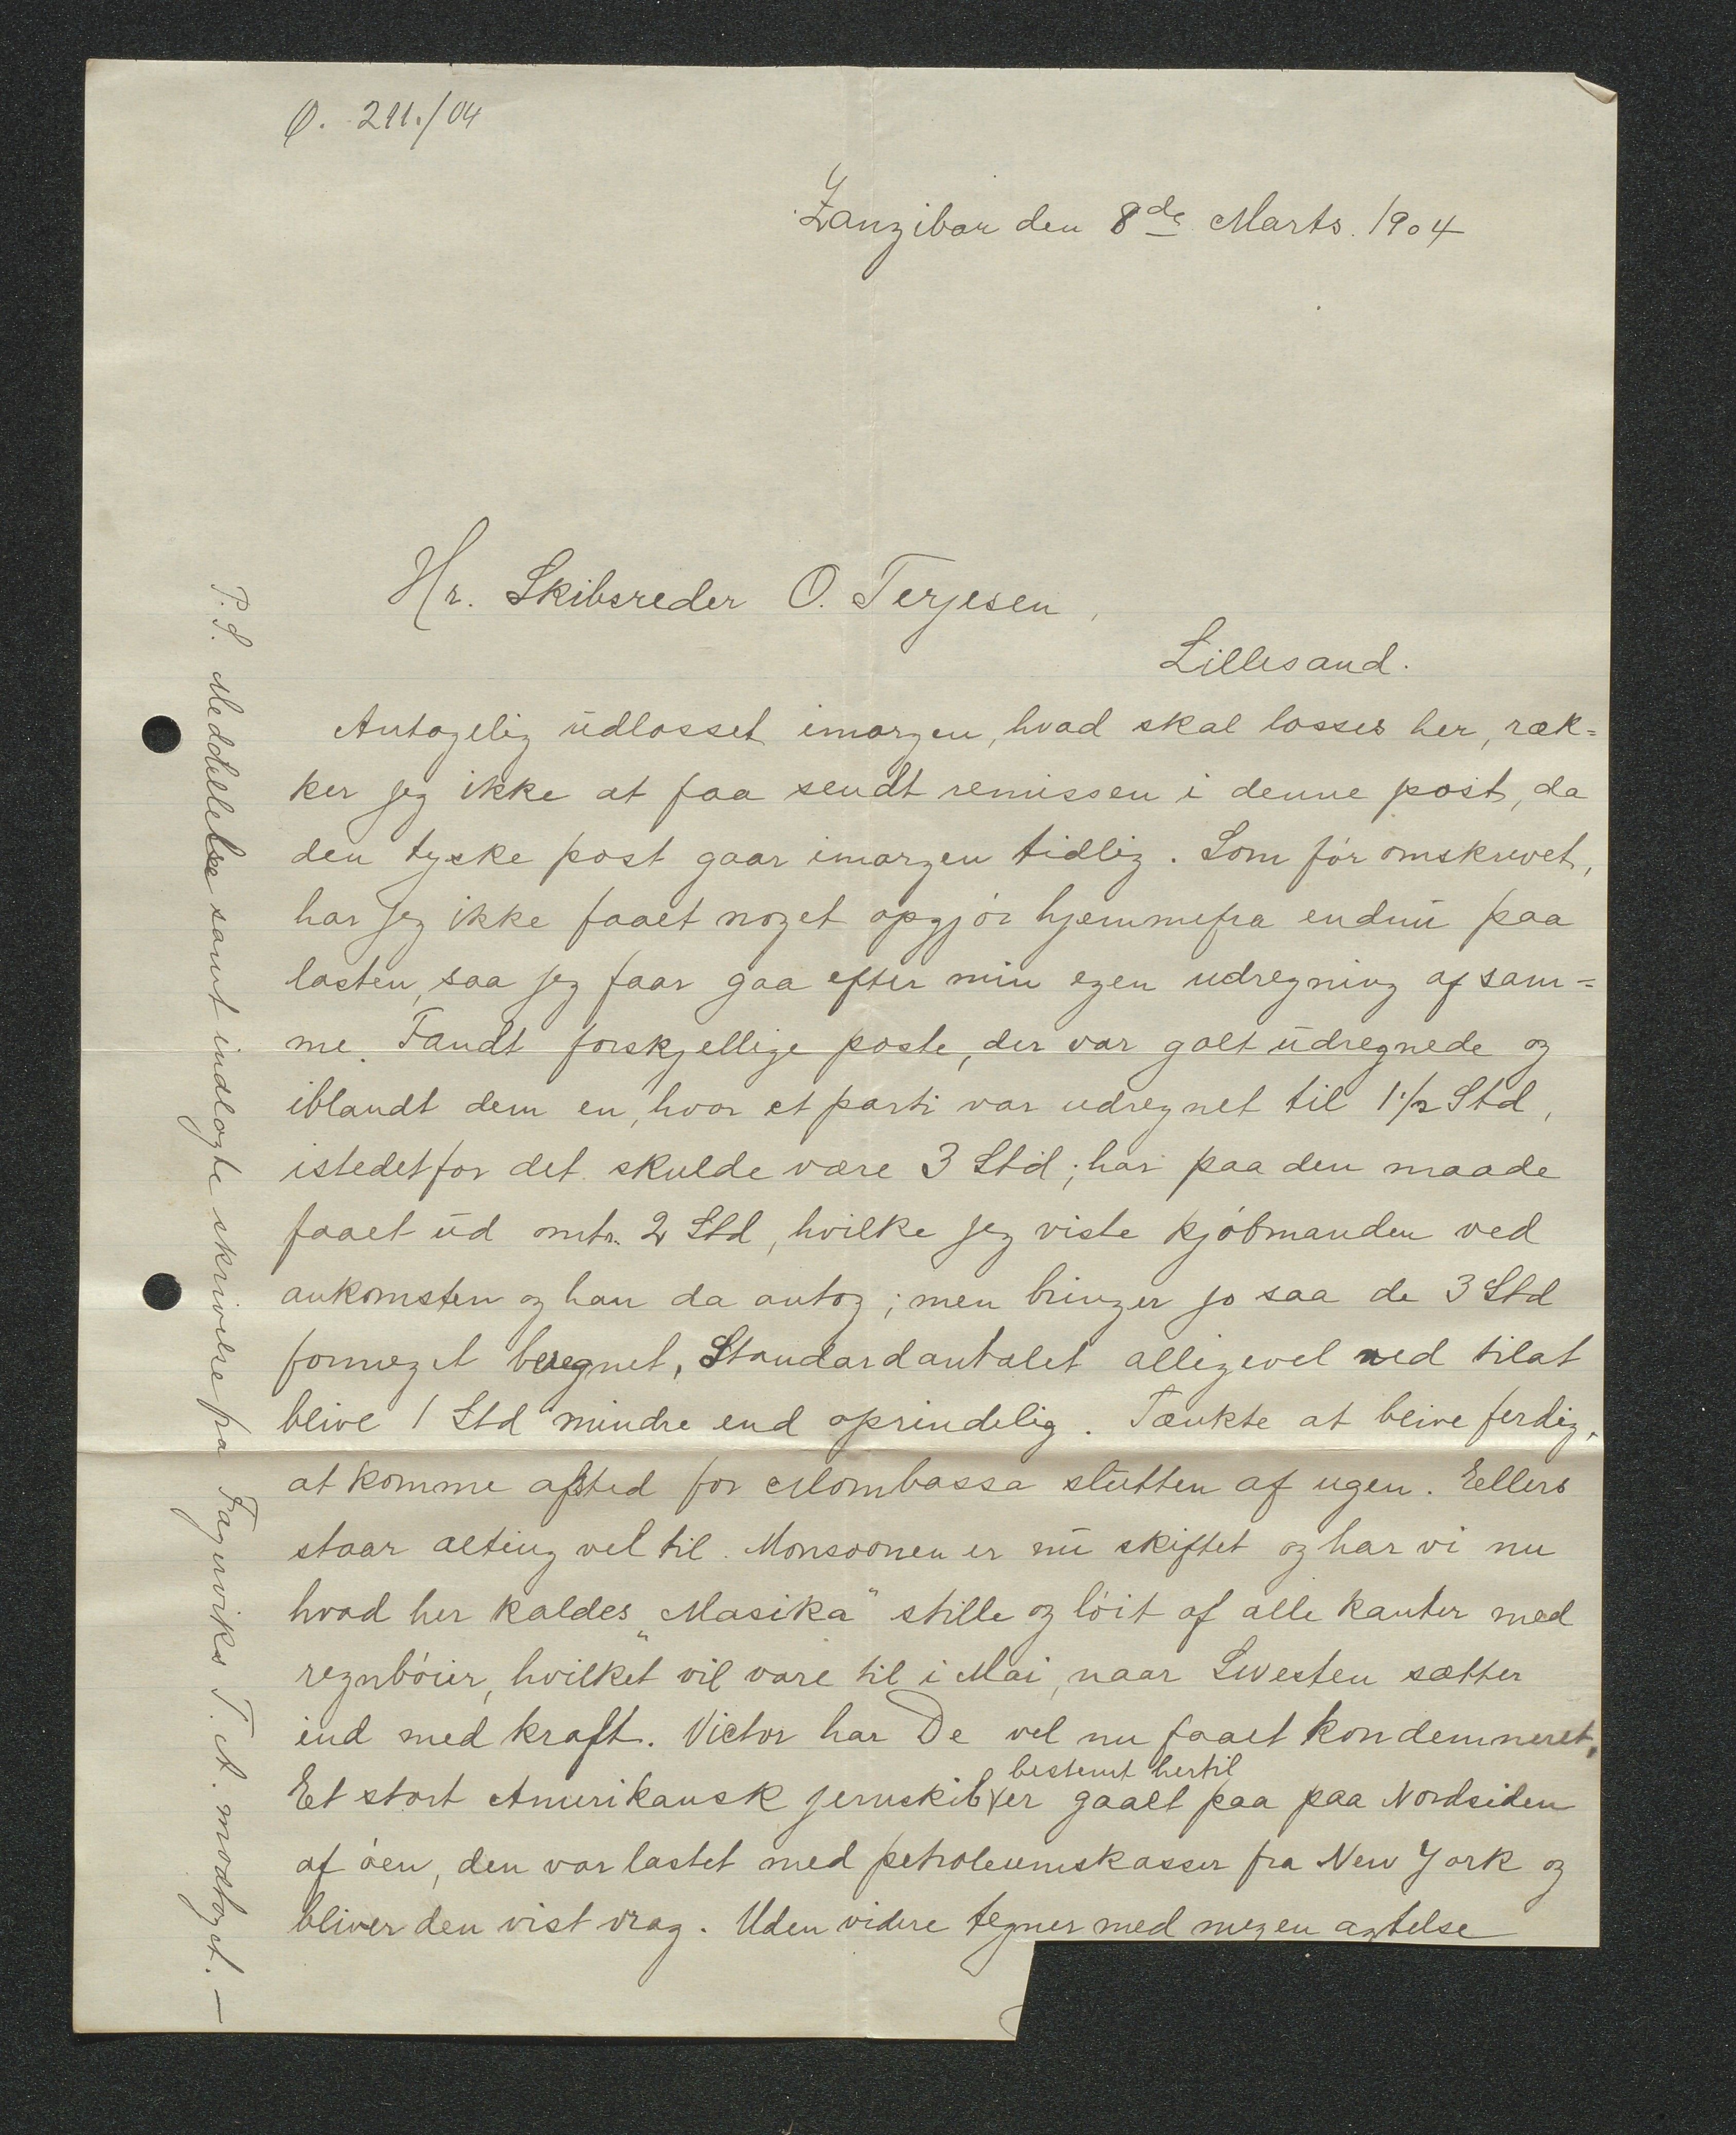 O. 211./04
Zanzibar den 8de Marts. 1904
Hr. Skibsreder O. Terjesen,
Lillesand.
Antagelig udlosset imorgen, hvad skal losses her, ræk=
ker jeg ikke at faa sendt remissen i denne post, da
den tyske post gaar imorgen tidlig. Som før omskrevet,
har jeg ikke faaet noget opgjør hjemmefra endnu paa
lasten, saa jeg faar gaa efter min egen udregning af sam=
me. Fandt forskjellige poste, der var galt udregnede og
iblandt dem en, hvor et parti var udregnet til 1 1/2 Std,
istedetfor det skulde være 3 Std; har paa den maade
faaet ud omtr. 2 Std, hvilke jeg viste kjøbmanden ved
ankomsten og han da antog; men bringer jo saa de 3 Std
formeget beregnet, Standardantalet alligevel ned tilat
blive 1 Std mindre end oprindelig. Tænkte at blive ferdig,
at komme afsted for Mombassa slutten af ugen. Eellers
staar alting vel til. Monsoonen er nu skiftet og har vi nu
hvad her kaldes „Masika" stille og løit af alle kanter med
regnbøier, hvilket vil vare til i Mai, naar SWesten sætter
ind med kraft. Victor har De vel nu faaet kondemneret.
bestemt hertil
Et stort Amerikansk jernskib er gaaet paa paa Nordsiden
af øen, den var lastet med petroleumskasser fra New York og
bliver den vist vrag. Uden videre tegner med megen agtelse
P.S. Meddelelse samt indlagte skrivelse fra Fagerviks T. A. modtaget. —